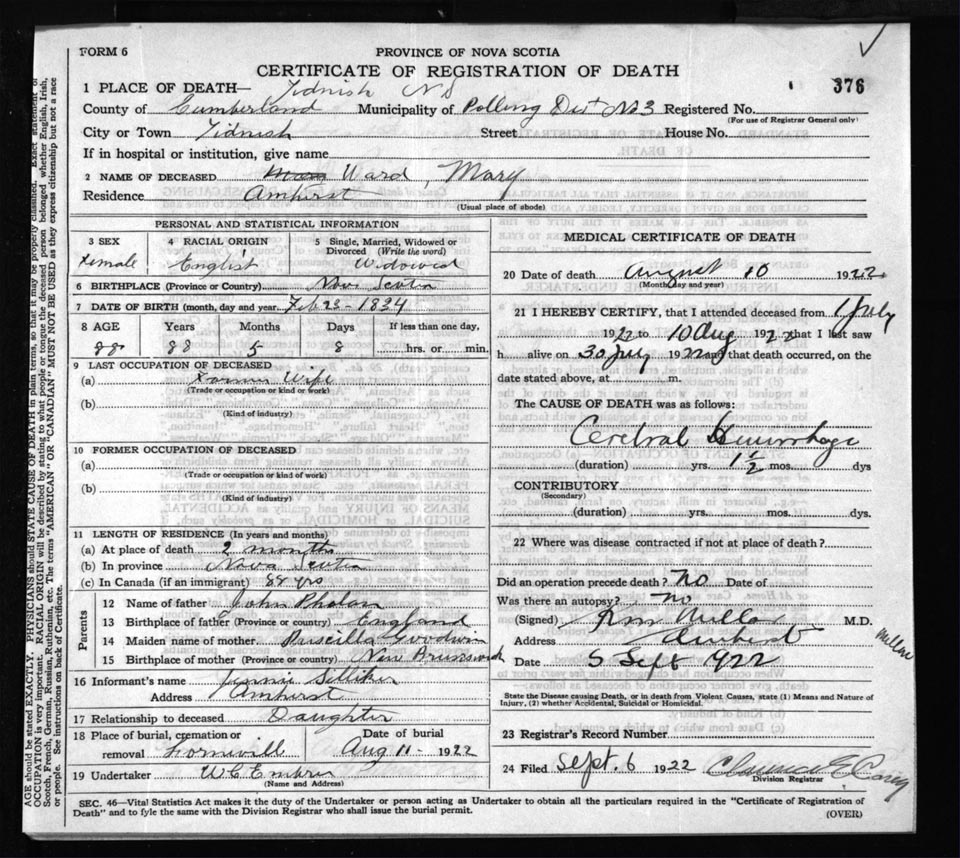 FORM 6
PROVINCE OF NOVA SCOTIA
CERTIFICATE OF REGISTRATION OF DEATH
376
1 PLACE OF DEATH— Tidnish N S
County of Cumberland Municipality of Polling Dist No 3 Registered No.
(For use of Registrar General only)
City or Town Tidnish Street House No.
If in hospital or institution, give name
2 NAME OF DECEASED Ward, Mary
Residence Amherst
(Usual place of abode)
PERSONAL AND STATISTICAL INFORMATION
3 SEX 4 RACIAL ORIGIN 5 Single, Married, Widowed or Divorced (Write the word)
Female English Widowed
6 BIRTHPLACE (Province or Country) Nova Scotia
7 DATE OF BIRTH (month, day and year) Feb 23 - 1834
8 AGE Years Months Days If less than one day,
88 88 5 8 hrs. or min.
9 LAST OCCUPATION OF DECEASED
(a) Farmer Wife
(Trade or occupation or kind or work)
(b)
(Kind of industry)
10 FORMER OCCUPATION OF DECEASED
(a)
(Trade or occupation or kind of work)
(b)
(Kind of industry)
11 LENGTH OF RESIDENCE (In years and months)
(a) At place of death 2 months
(b) In province Nova Scotia
(c) In Canada (if an immigrant) 88 yrs
Parents
12 Name of father John Phalan
13 Birthplace of father (Province or country) England
14 Maiden name of mother Priscilla Goodwin
15 Birthplace of mother (Province or country) New Brunswick
16 Informant's name Jennie Silliker
Address Amherst
17 Relationship to deceased Daughter
18 Place of burial, cremation or removal Date of burial
Aug 11 - 1922
19 Undertaker W C Embree
(Name and Address)
MEDICAL CERTIFICATE OF DEATH
20 Date of death August 10 1922
(Month, day and year)
21 I HEREBY CERTIFY, that I attended deceased from 1 July
1922 to 10 Aug 1922 that I last saw
h alive on 30 July 1922 and that death occurred, on the
date stated above, at m.
The CAUSE OF DEATH was as follows:
Cerebral Hemorrhage
(duration) yrs. 1½ mos. dys
CONTRIBUTORY
(Secondary)
(duration) yrs. mos. dys.
22 Where was disease contracted if not at place of death?
Did an operation precede death? No Date of
Was there an autopsy? No
(Signed) M.D.
Address Amherst
Date 5 Sept 1922
State the Disease causing Death, or in death from Violent Causes, state (1) Means and Nature of
Injury, (2) whether Accidental, Suicidal or Homicidal.
23 Registrar's Record Number
24 Filed Sept. 6 1922 Clarence E Carey
Division Registrar
SEC. 46—Vital Statistics Act makes it the duty of the Undertaker or person acting as Undertaker to obtain all the particulars required in the "Certificate of Registration of
Death" and to fyle the same with the Division Registrar who shall issue the burial permit.
(OVER)
AGE should be stated EXACTLY. PHYSICIANS should STATE CAUSE OF DEATH in plain terms, so that it may be properly classified. Exact statement of
OCCUPATION is very important. RACIAL ORIGIN will be described by stating to what people or tongue the deceased person belonged, whether English, Irish,
Scotch, French, German, Russian, Ruthenian, etc. The terms "AMERICAN" OR "CANADIAN" MUST NOT BE USED as they express citizenship but not a race
or people. See instructions on back of Certificate.